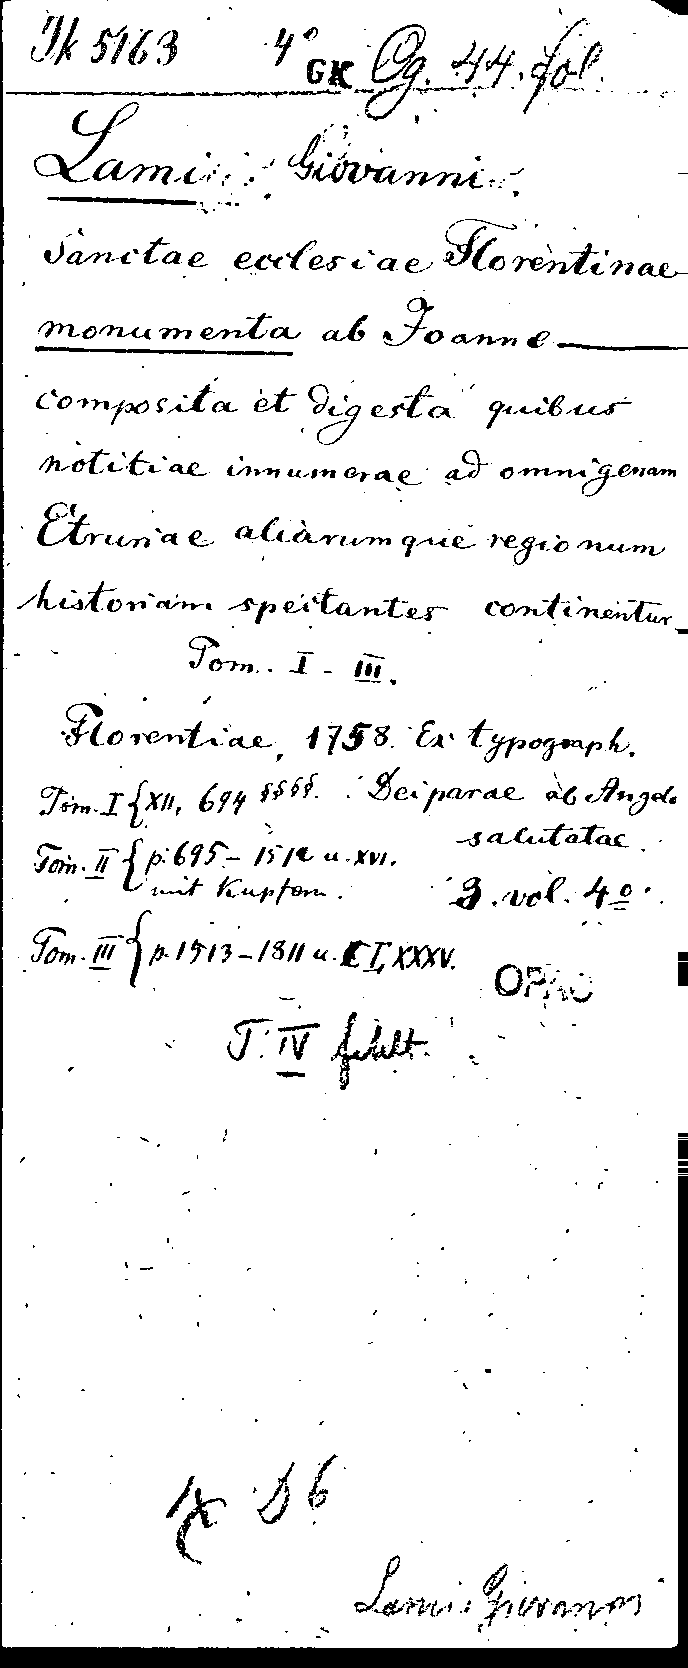 Ik 5163 4° GK Og. 44. fol.
Lami, Giovanni.
Sanctae ecclesiae Florentinae
monumenta ab Joanne —
composita et digesta quibus
notitiae innumerae ad omnigenam
Etruriae aliarumque regionum
historiam spectantes continentur
Tom. I - III.
Florentiae, 1758. Ex typograph.
Tom. I { XII, 694 §§§§. Deiparae ab Angelo
salutatae.
Tom. II { p. 695 - 1512 u. XVI.
mit Kupfern. 3. vol. 4°.
Tom. III { p. 1513 - 1811 u. CI, XXXV.
OPAC
T. IV fehlt.
D 6
Lami, Giovanni